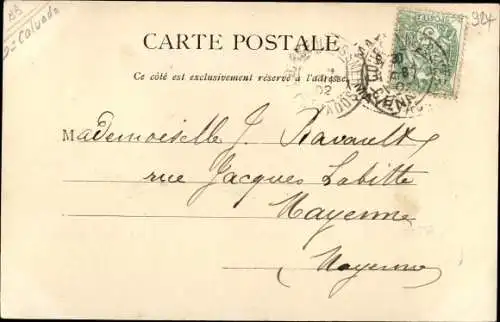 BB
D=Calvados
324
CARTE POSTALE
Ce côté est exclusivement réservé à l'adresse
02
CALVADOS
MAYENNE
Mademoiselle J. Ravault
rue Jacques Labitte
Mayenne
Mayenne